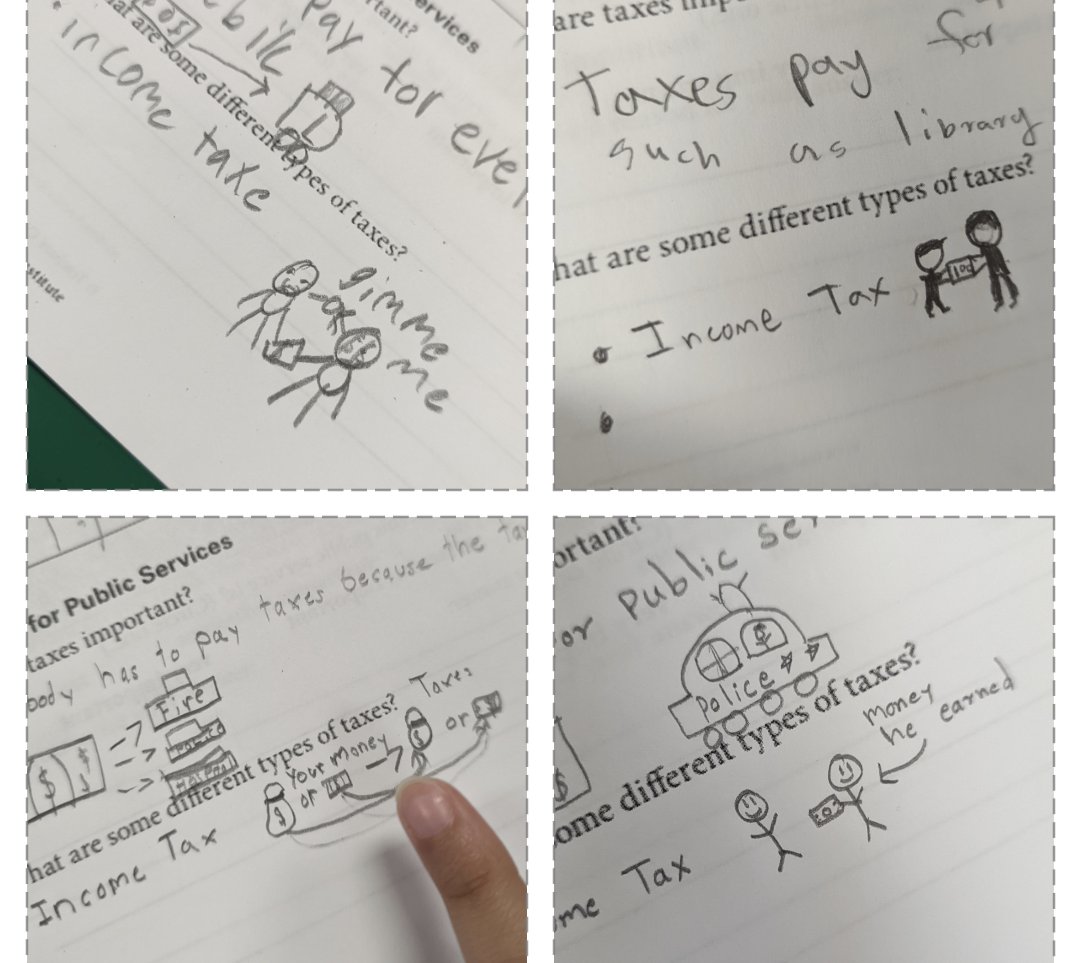 ervices
rtant?
Pay for eve
hat are some different types of taxes?
income taxe
stitute
gimme
me
are taxes imp
Taxes pay for
such as library
hat are some different types of taxes?
Income Tax
100
for Public Services
taxes important?
body has to pay taxes because the ta
Fire
$ $
hat are some different types of taxes?
Taxes
your money
or
or
$
$
Income Tax
ortant?
or public se
$
Police
ome different types of taxes?
money
he earned
me Tax